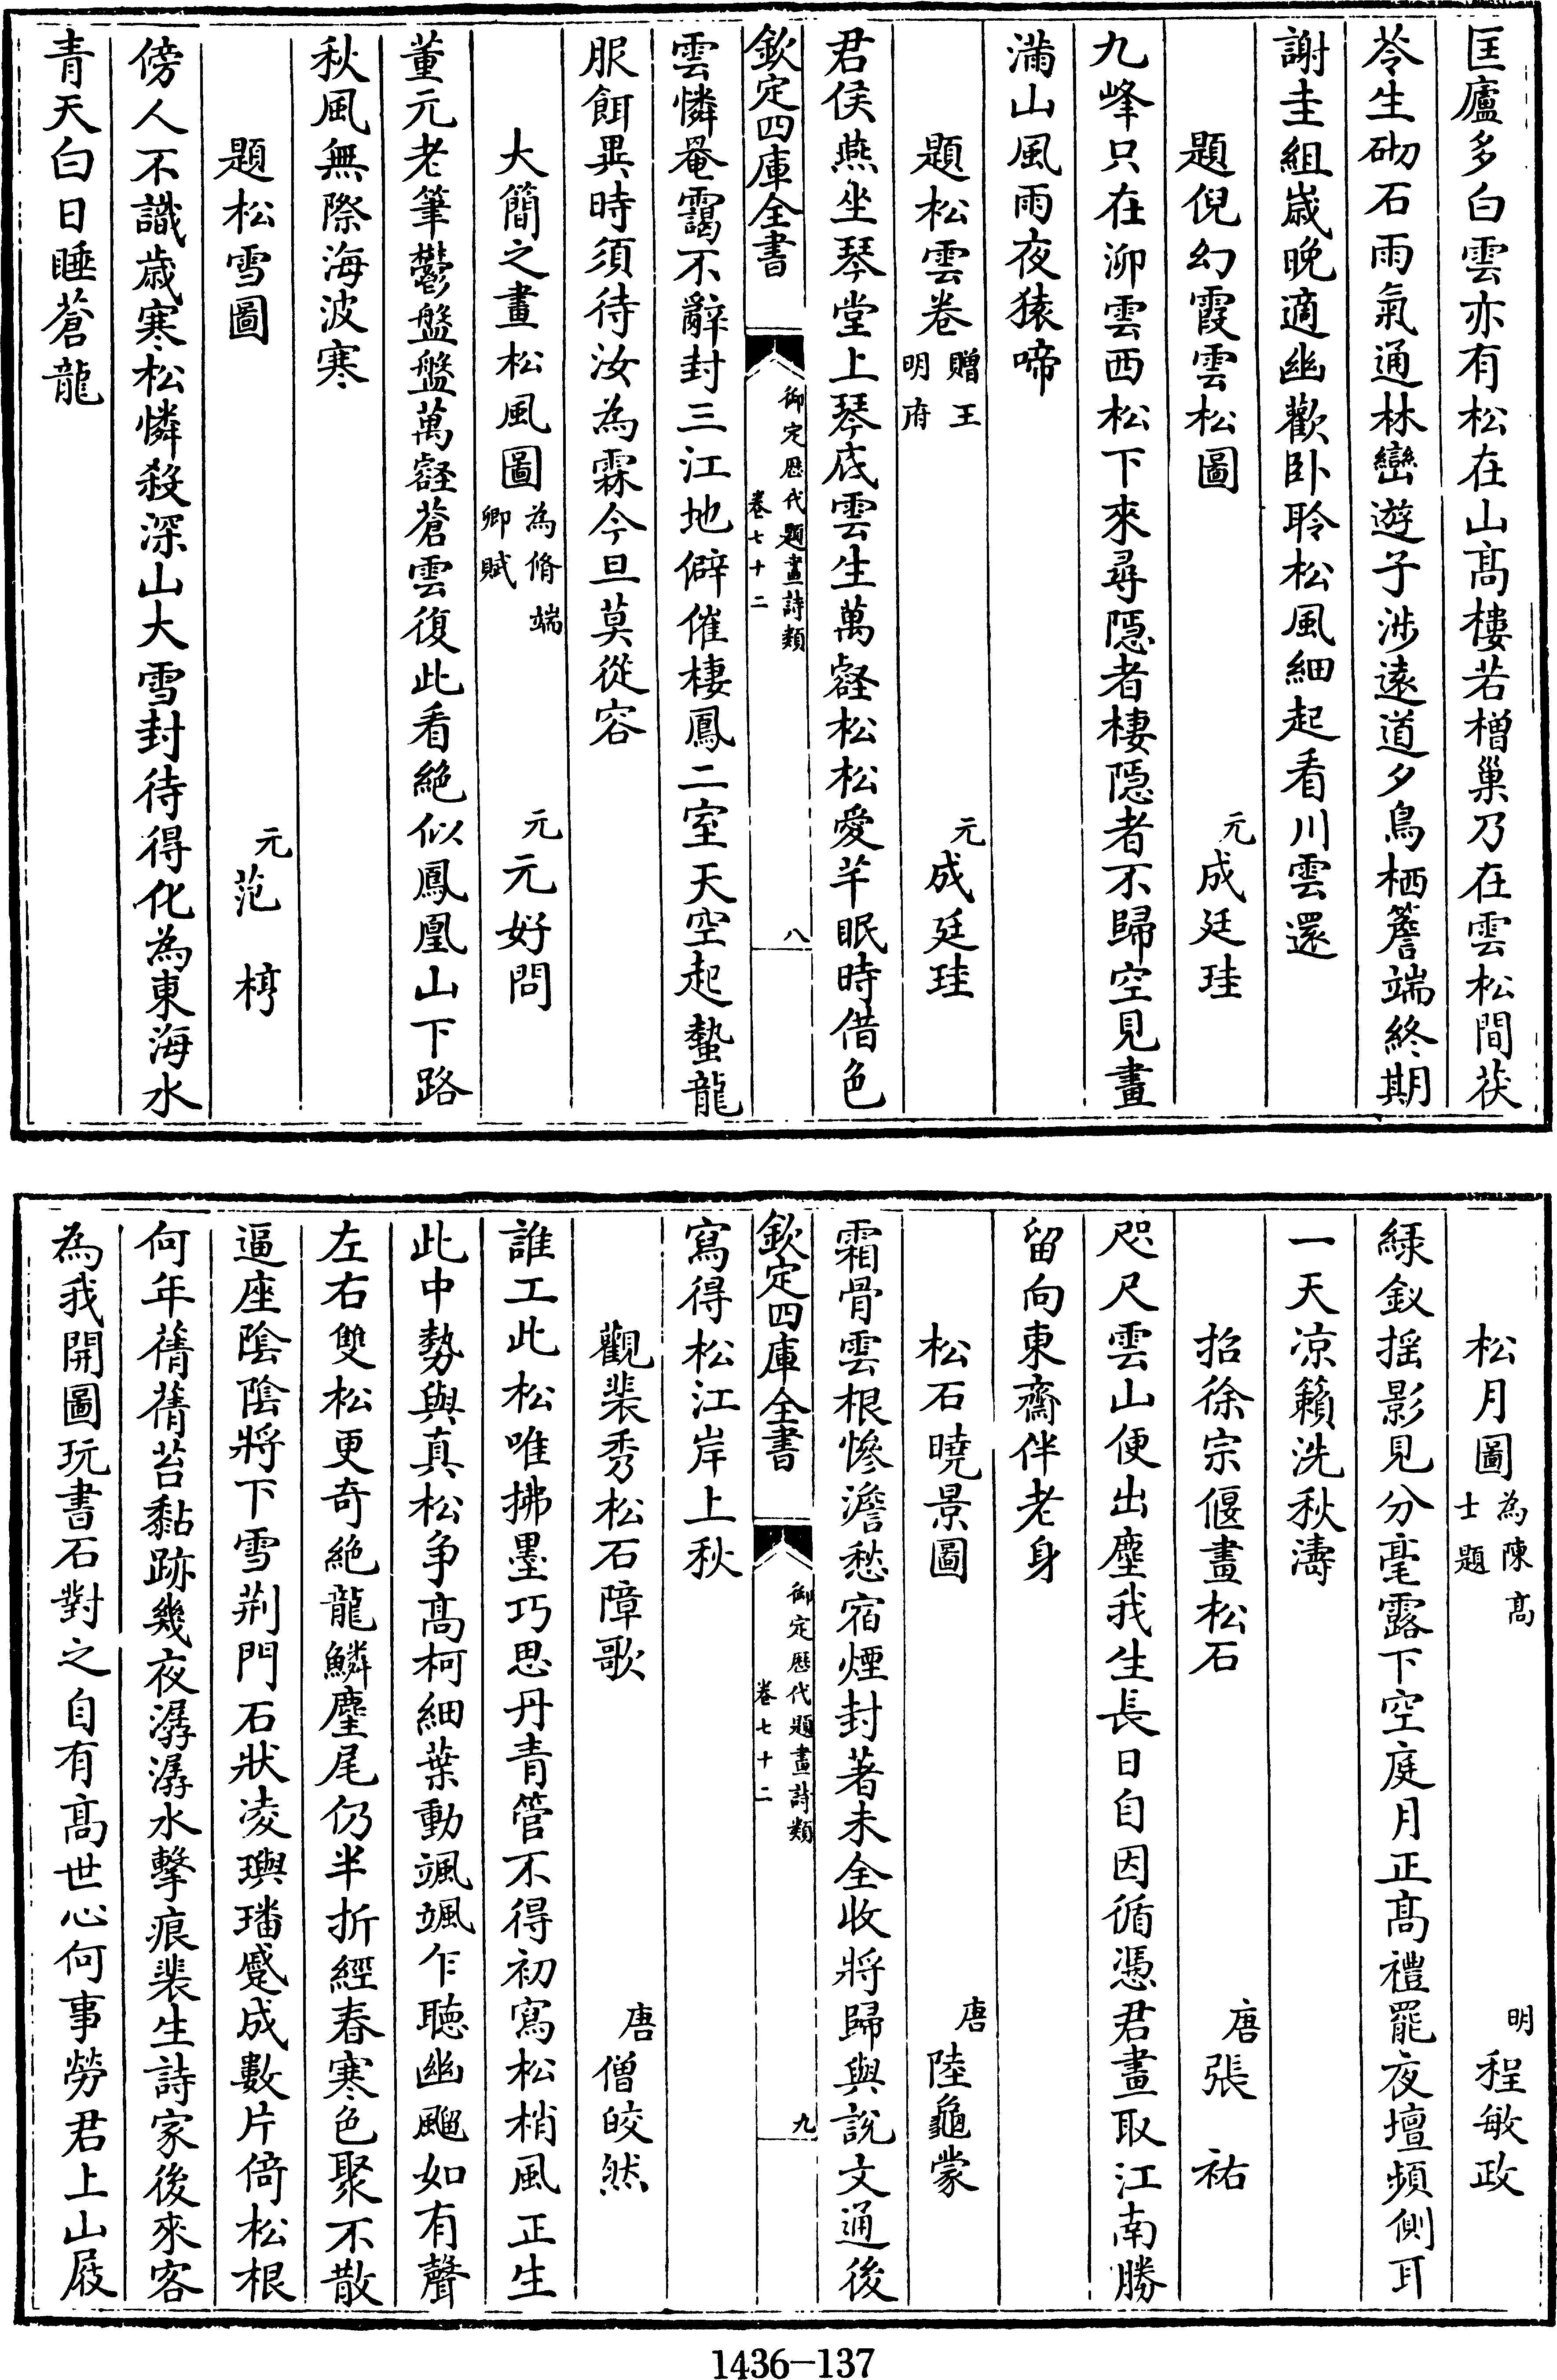 匡廬多白雲亦有松在山高樓若橧巢乃在雲松間茯
苓生砌石雨氣通林巒遊子涉遠道夕鳥栖簷端終期
謝圭組歲晚適幽歡卧聆松風細起看川雲還
題倪幻霞雲松圖 元成廷珪
九峰只在泖雲西松下來尋隱者棲隱者不歸空見畫
滿山風雨夜猿啼
題松雲卷 贈王明府 元成廷珪
君侯燕坐琴堂上琴底雲生萬壑松松愛芊眠時借色
欽定四庫全書 御定歷代題畫詩類 卷七十二 八
雲憐菴靄不辭封三江地僻催棲鳳二室天空起蟄龍
服餌異時須待汝為霖今旦莫從容
大簡之畫松風圖 為脩端卿賦 元元好問
董元老筆鬱盤盤萬壑蒼雲復此看絕似鳳凰山下路
秋風無際海波寒
題松雪圖 元范梈
傍人不識歲寒松憐殺深山大雪封待得化為東海水
青天白日睡蒼龍
松月圖 為陳高士題 明程敏政
綠釵揺影見分毫露下空庭月正高禮罷夜壇頻側耳
一天凉籟洗秋濤
招徐宗偃畫松石 唐張祐
咫尺雲山便出塵我生長日自因循憑君畫取江南勝
留向東齋伴老身
松石曉景圖 唐陸龜蒙
霜骨雲根慘澹愁宿煙封著未全收將歸與說文通後
欽定四庫全書 御定歷代題畫詩類 卷七十二 九
寫得松江岸上秋
觀裴秀松石障歌 唐僧皎然
誰工此松唯拂墨巧思丹青管不得初寫松梢風正生
此中勢與真松争高柯細葉動颯颯乍聽幽飀如有聲
左右雙松更奇絕龍鱗麈尾仍半折經春寒色聚不散
逼座陰陰將下雪荆門石狀凌璵璠蹙成數片倚松根
何年蒨蒨苔黏跡幾夜潺潺水擊痕裴生詩家後來客
為我開圖玩書石對之自有高世心何事勞君上山屐
1436-137